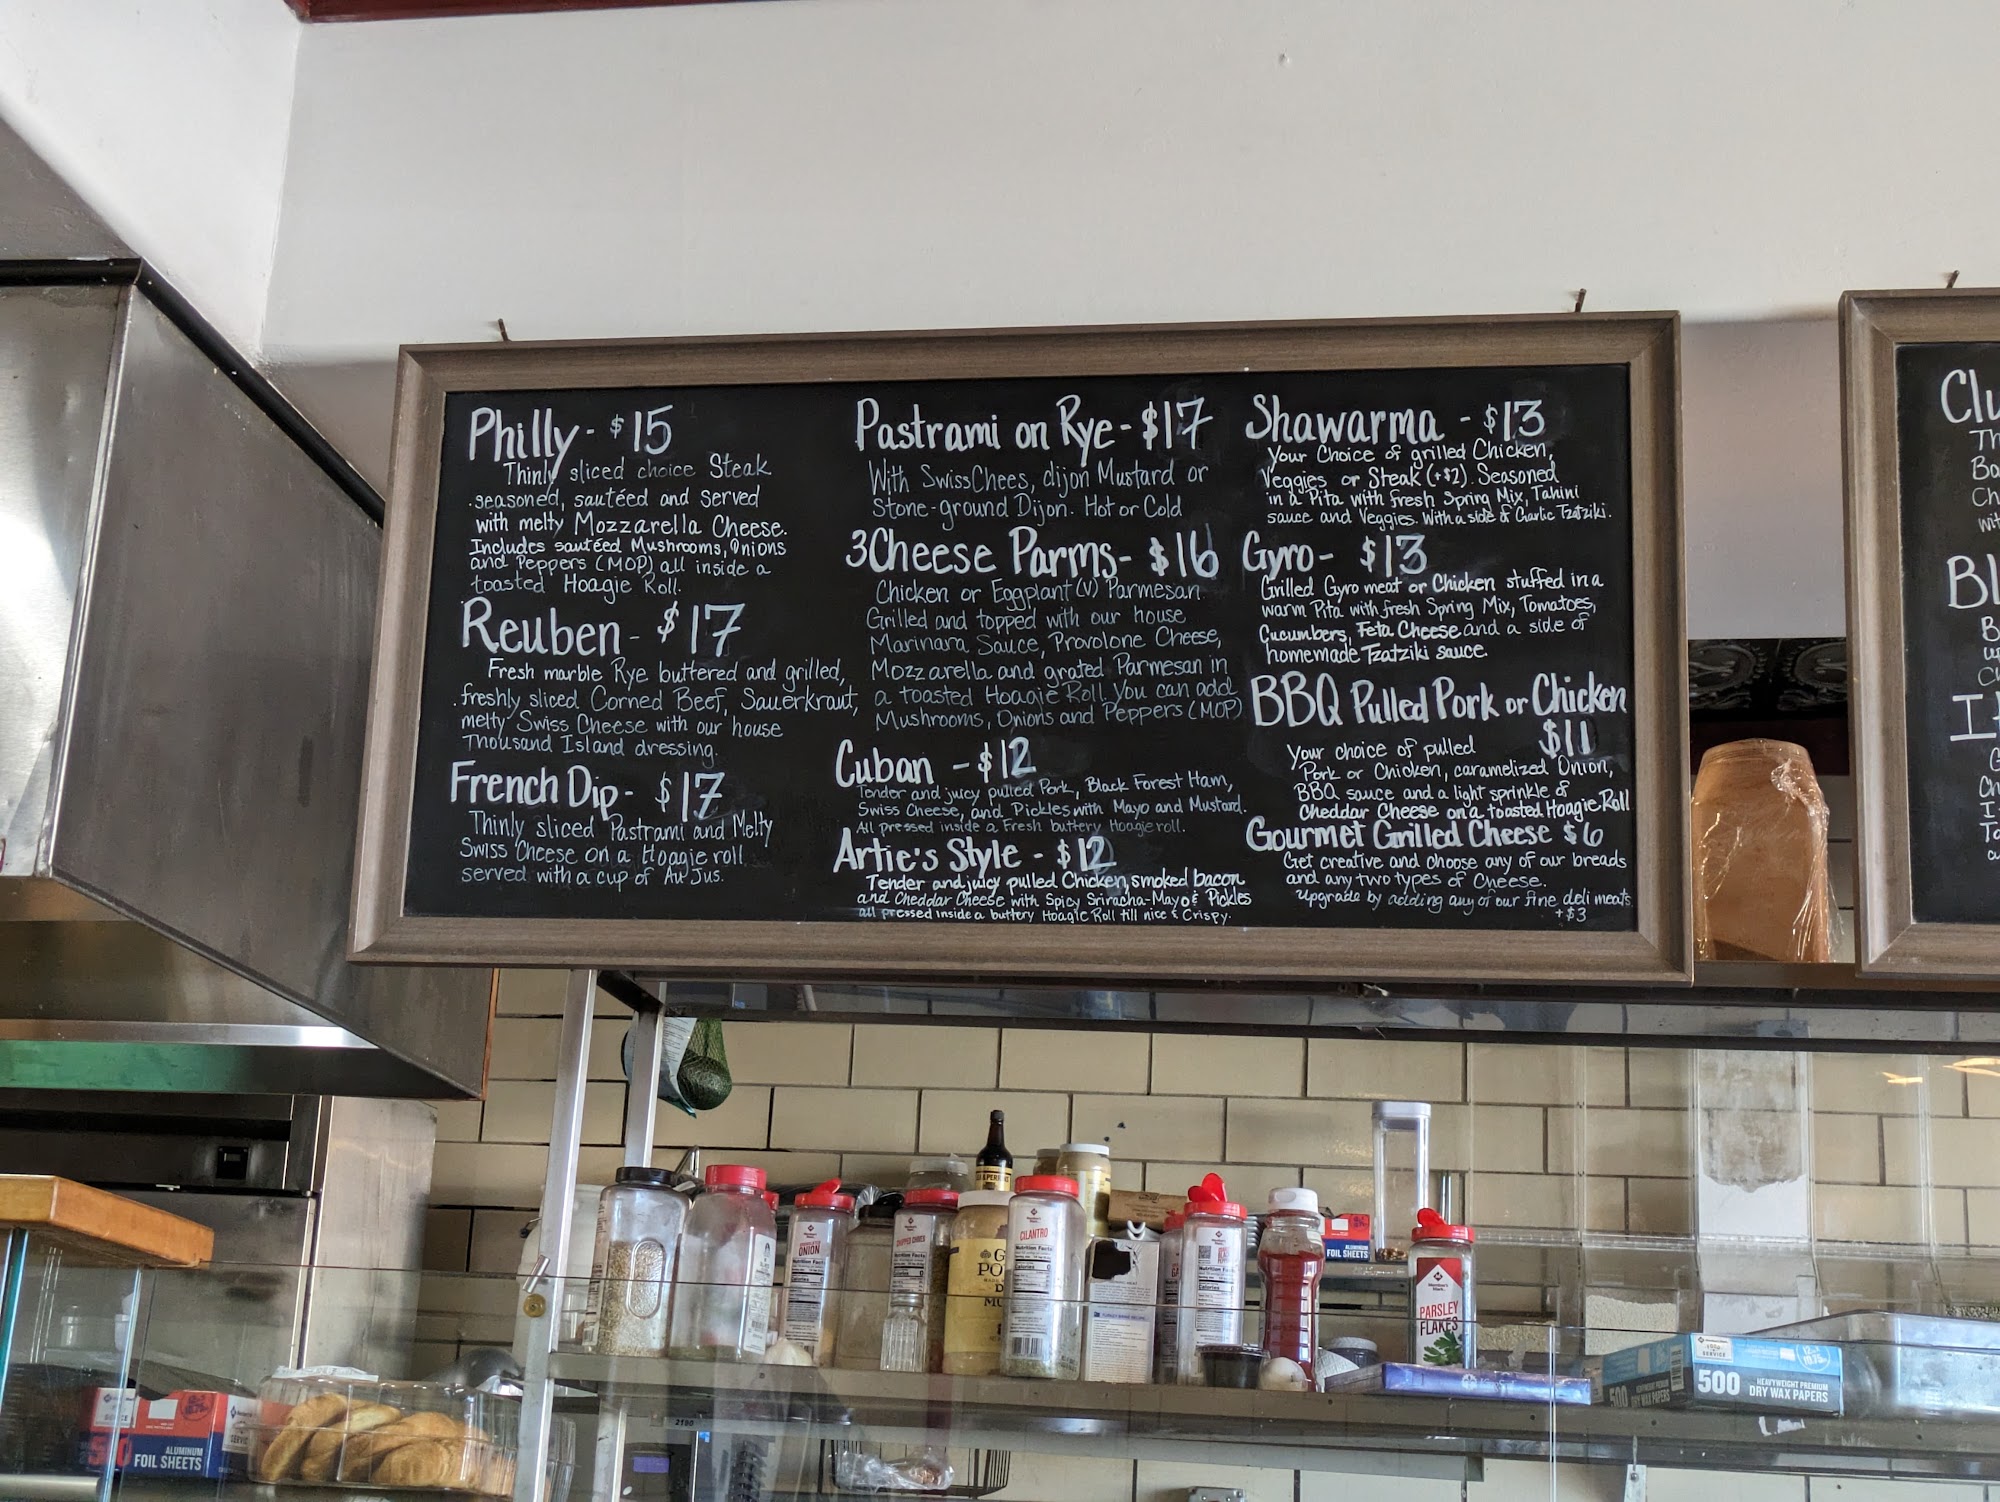 Philly - $15
Thinly sliced choice Steak
seasoned, sautéed and served
with melty Mozzarella Cheese.
Includes sautéed Mushrooms, Onions
and Peppers (MOP) all inside a
toasted Hoagie Roll.
Reuben - $17
Fresh marble Rye buttered and grilled,
freshly sliced Corned Beef, Sauerkraut,
melty Swiss Cheese with our house
Thousand Island dressing.
French Dip - $17
Thinly sliced Pastrami and Melty
Swiss Cheese on a Hoagie roll
served with a cup of Au Jus.
Pastrami on Rye - $17
With Swiss Chees, dijon Mustard or
Stone-ground Dijon. Hot or Cold
3 Cheese Parms - $16
Chicken or Eggplant (V) Parmesan
Grilled and topped with our house
Marinara Sauce, Provolone Cheese,
Mozzarella and grated Parmesan in
a toasted Hoagie Roll. You can add
Mushrooms, Onions and Peppers (MOP)
Cuban - $12
Tender and juicy pulled Pork, Black Forest Ham,
Swiss Cheese, and Pickles with Mayo and Mustard.
All pressed inside a Fresh buttery Hoagie roll.
Artie's Style - $12
Tender and juicy pulled Chicken, smoked bacon
and Cheddar Cheese with Spicy Sriracha-Mayo & Pickles
all pressed inside a buttery Hoagie Roll till nice & Crispy.
Shawarma - $13
Your Choice of grilled Chicken,
Veggies or Steak (+$2). Seasoned
in a Pita with fresh Spring Mix, Tahini
sauce and Veggies. With a side of Garlic Tzatziki.
Gyro - $13
Grilled Gyro meat or Chicken stuffed in a
warm Pita with fresh Spring Mix, Tomatoes,
Cucumbers, Feta Cheese and a side of
homemade Tzatziki sauce.
BBQ Pulled Pork or Chicken
$11
Your choice of pulled
Pork or Chicken, caramelized Onion,
BBQ sauce and a light sprinkle of
Cheddar Cheese on a toasted Hoagie Roll
Gourmet Grilled Cheese $6
Get creative and choose any of our breads
and any two types of Cheese.
Upgrade by adding any of our fine deli meats
+$3
Clu
Th
Ba
Ch
wit
Bl
B
w
C
It
G
Ch
I
To
ONION
Nutrition Facts
Calories
CILANTRO
Nutrition Facts
Calories
Nutrition Facts
Calories
ALUMINUM
FOIL SHEETS
PARSLEY
FLAKES
500 HEAVYWEIGHT PREMIUM
DRY WAX PAPERS
ALUMINUM
FOIL SHEETS
2180